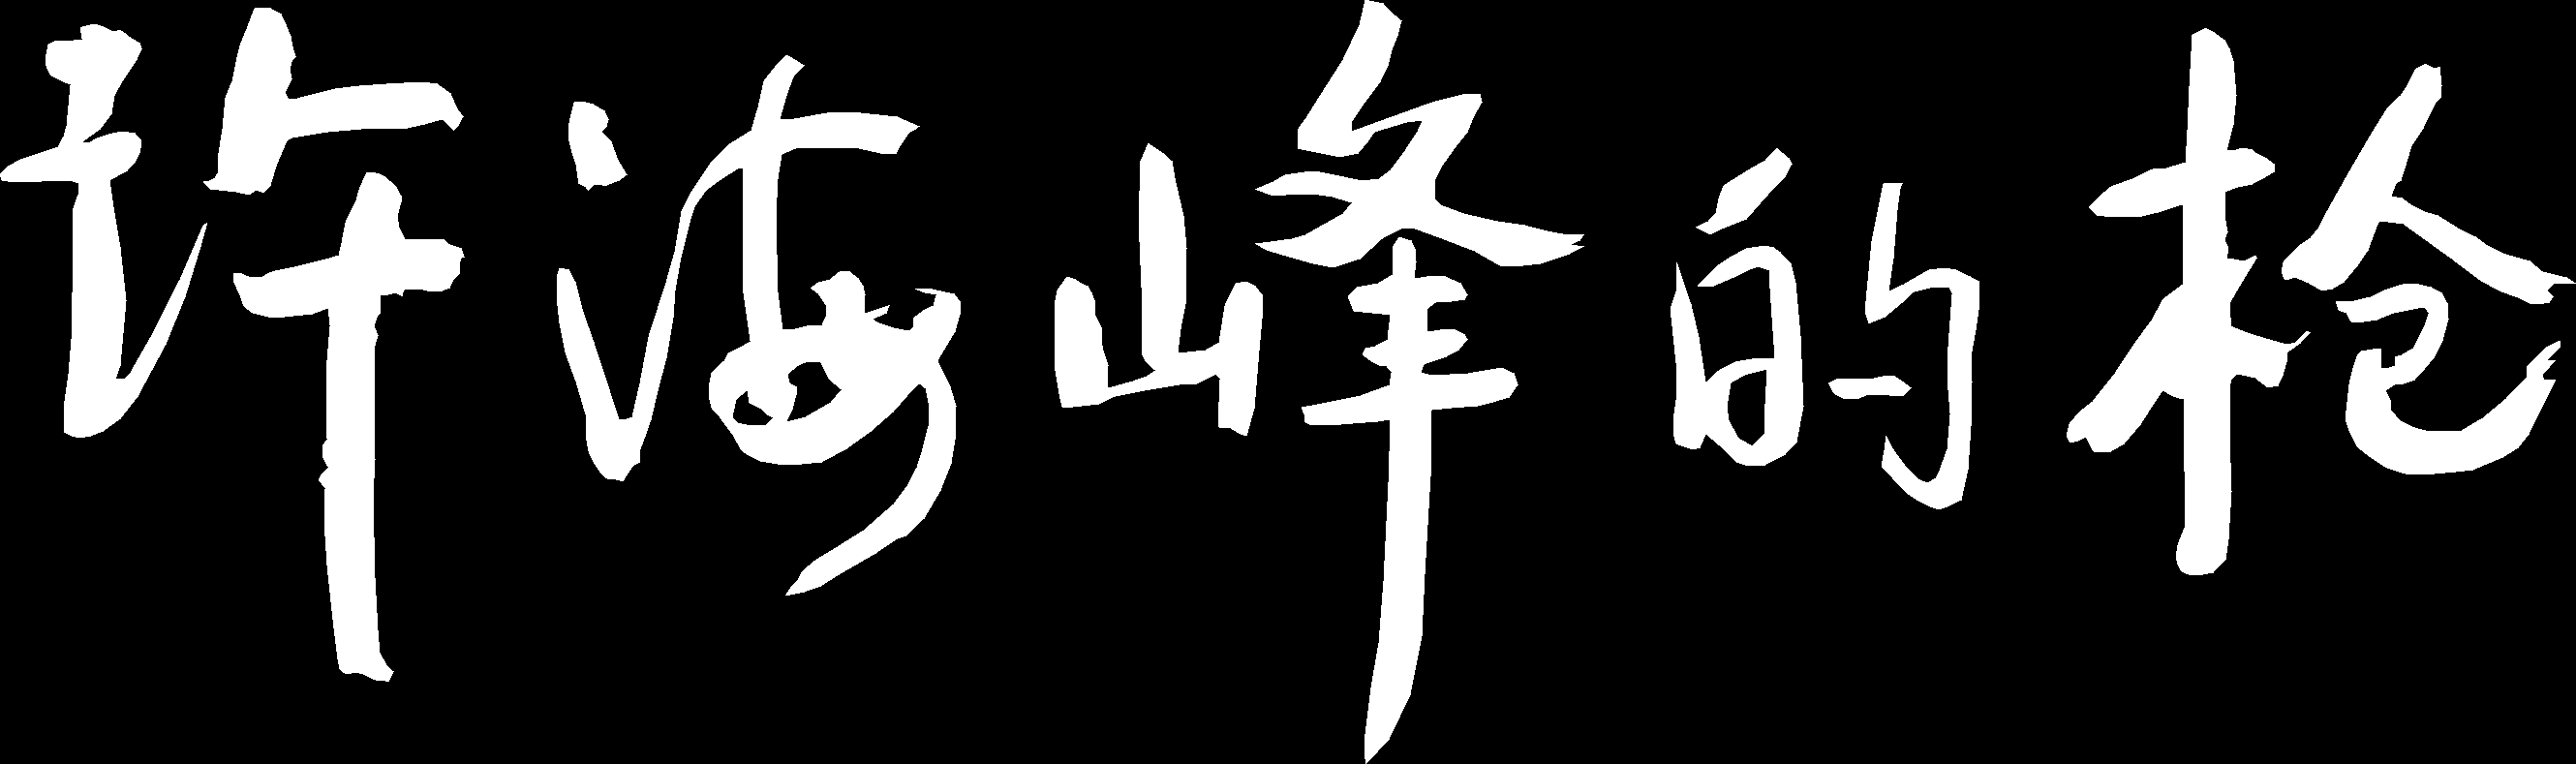 许海峰的枪